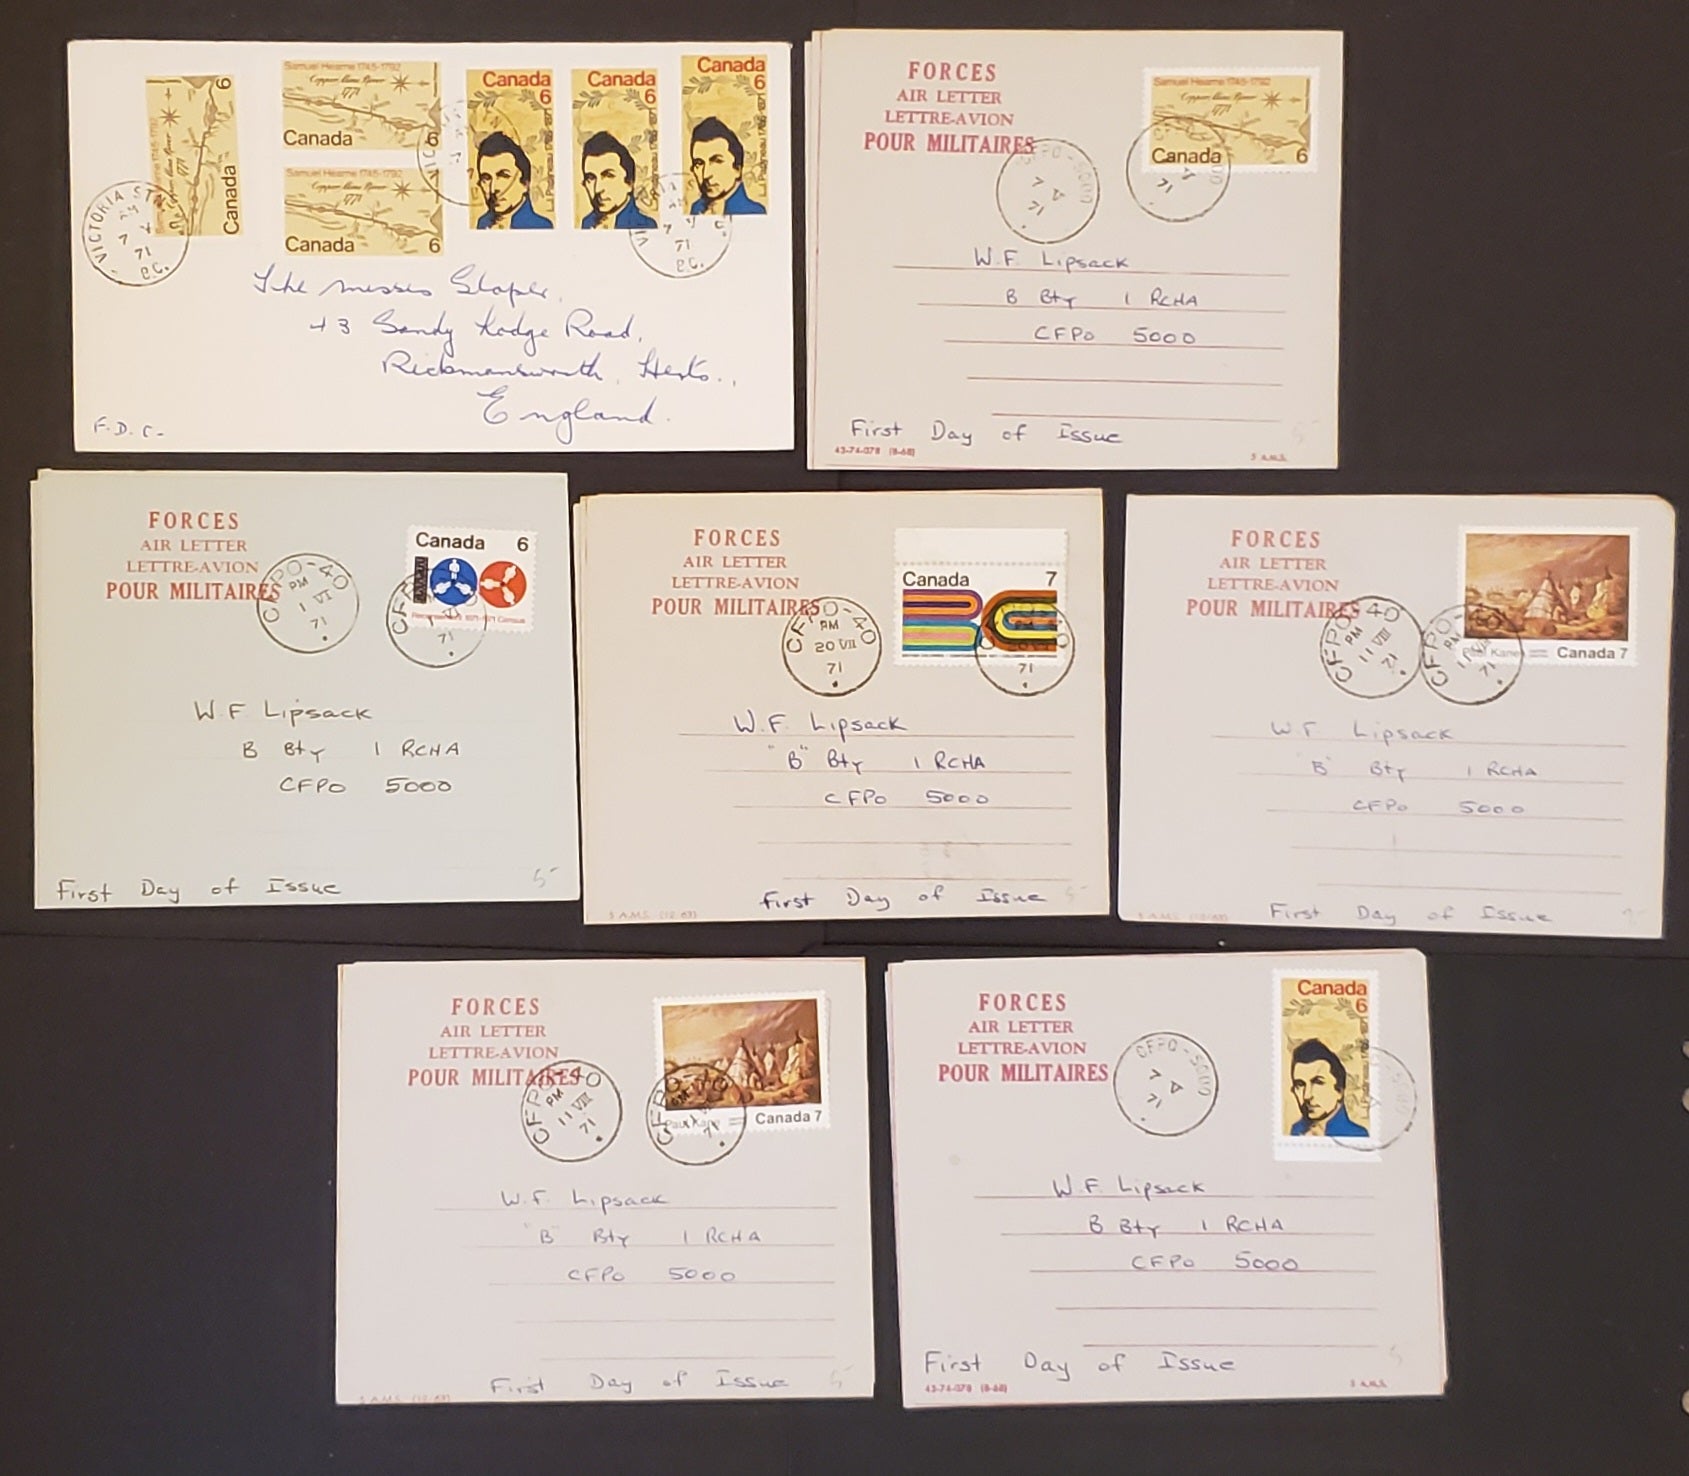 Samuel Hearne 1745-1792
Copper Mine River
1771
Canada 6
Samuel Hearne 1745-1792
Copper Mine River
1771
Canada 6
Samuel Hearne 1745-1792
Copper Mine River
1771
Canada 6
Canada
6
Canada
6
Canada
6
L.J. Papineau 1786-1871
VICTORIA STN.
7 V
71
B.C.
7 V
71
B.C.
The Misses Slaper,
43 Sandy Lodge Road,
Rickmansworth, Herts.,
England.
F.D.C.
FORCES
AIR LETTER
LETTRE-AVION
POUR MILITAIRES
Samuel Hearne 1745-1792
Copper Mine River
1771
Canada 6
CFPO-5000
7 V
71
W.F. Lipsack
B Bty 1 RCHA
CFPO 5000
First Day of Issue
43-74-078 (8-68)
S A.M.S.
FORCES
AIR LETTER
LETTRE-AVION
POUR MILITAIRES
Canada 6
Recensement 1871-1971 Census
CFPO-40
PM
1 VI
71
W.F. Lipsack
B Bty 1 RCHA
CFPO 5000
First Day of Issue
FORCES
AIR LETTER
LETTRE-AVION
POUR MILITAIRES
Canada 7
CFPO-40
PM
20 VII
71
W.F. Lipsack
"B" Bty 1 RCHA
CFPO 5000
First Day of Issue
FORCES
AIR LETTER
LETTRE-AVION
POUR MILITAIRES
Paul Kane Canada 7
CFPO-40
PM
11 VIII
71
W.F. Lipsack
"B" Bty 1 RCHA
CFPO 5000
First Day of Issue
FORCES
AIR LETTER
LETTRE-AVION
POUR MILITAIRES
Paul Kane Canada 7
CFPO-40
PM
11 VIII
71
W.F. Lipsack
"B" Bty 1 RCHA
CFPO 5000
First Day of Issue
FORCES
AIR LETTER
LETTRE-AVION
POUR MILITAIRES
Canada
6
CFPO-5000
7 V
71
W.F. Lipsack
B Bty 1 RCHA
CFPO 5000
First Day of Issue
43-74-078 (8-68)
S A.M.S.